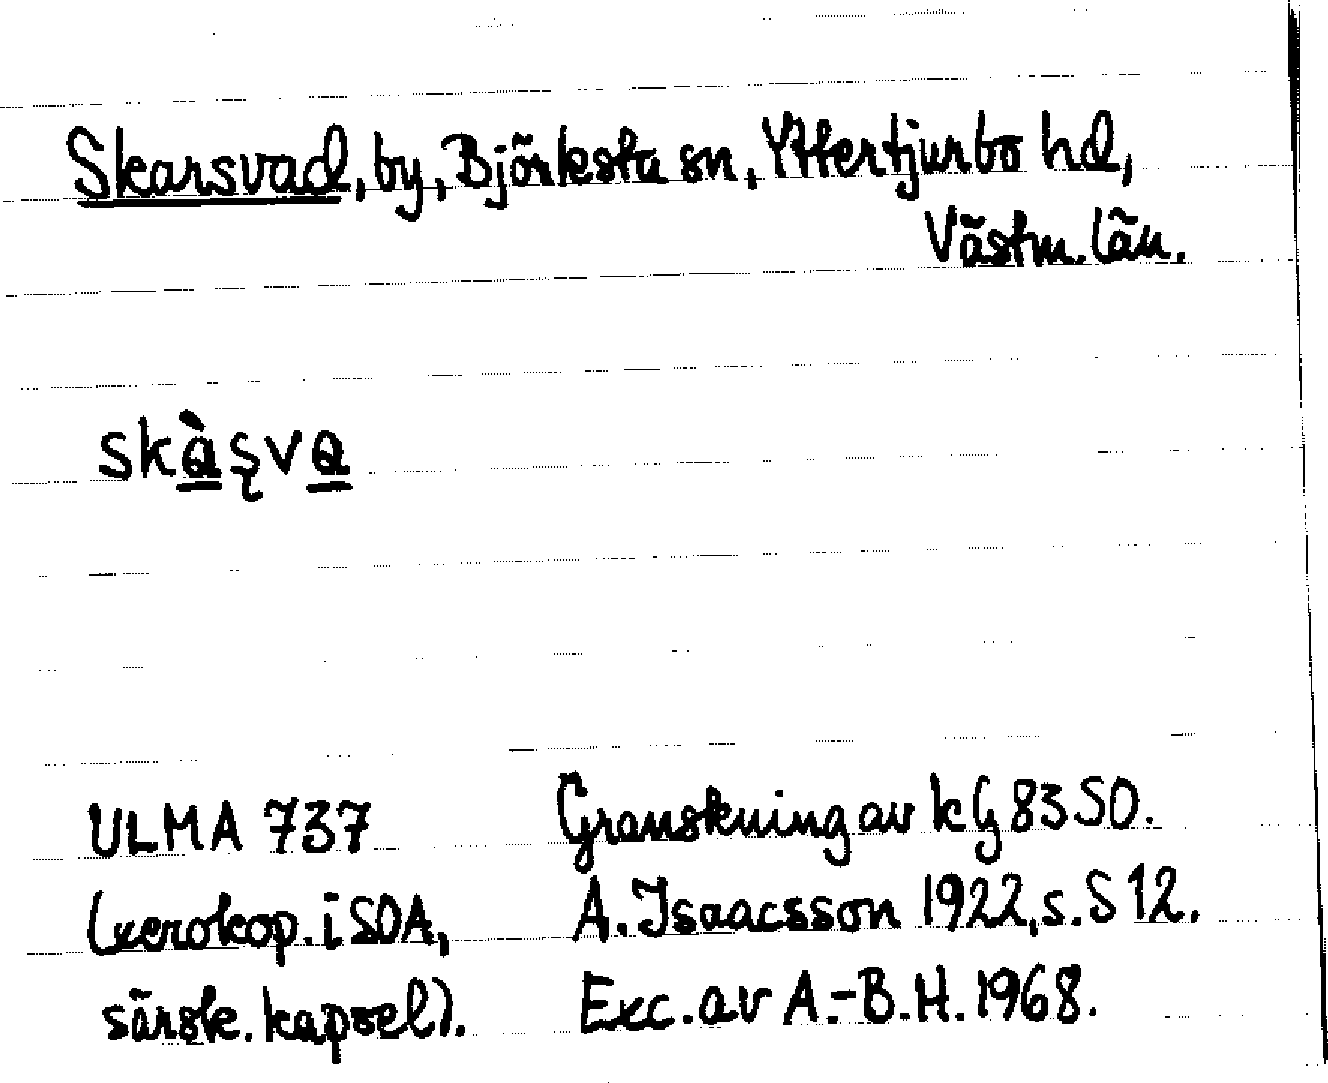 Skarsvad, by, Björksta sn, Yttertjurbo hd,
Västm. län.
skàşva
ULMA 737
(xerokop. i SOA,
särsk. kapsel).
Granskning av kG 83 SO.
A. Isaacsson 1922, s. S 12.
Exc. av A.-B. H. 1968.